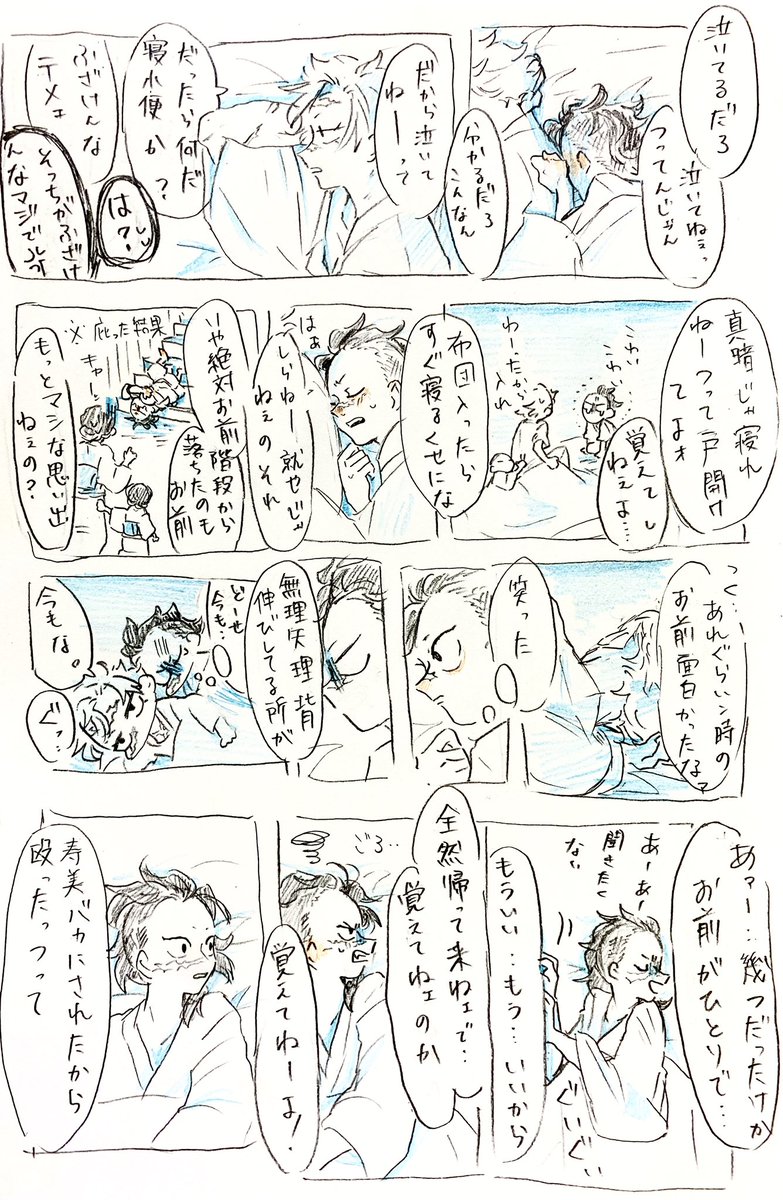 泣いてるだろ
泣いてねェっ
つってんじゃん
分かるだろ
こんなん
だから泣いて
ねーーって
だったら何だ
寝小便か？
ふざけんな
テメェ
は？
そっちがふざけ
んなマジで
真暗じゃ寝れ
ねーつって戸開け
てよォ
覚えてし
ねぇよ…
こわい
こわい
わーったから
入れ
布団入ったら
すぐ寝るくせにな
はぁ
しらねー就やじゃ
ねぇのそれ
いや絶対お前
階段から
落ちたのも
お前
※庇った結果
キャーッ
もっとマシな思い出
ねぇの？
っく…
あれぐらいン時の
お前面白かったなァ
笑った
無理矢理背
伸びしてる所が
どーせ
今も…
今もな。
ぐっ…
あァー…幾つだったけか
お前がひとりで…
あーあー
聞きたく
ない
ぐいぐい
もういい…もう…いいから
全然帰って来ねェで…
覚えてねェのか
ごろ…
覚えてねーよ！
寿美バカにされたから
殴ったつって